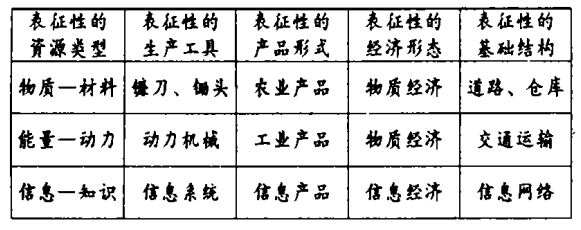 表征性的 表征性的 表征性的 表征性的 表征性的
资源类型 生产工具 产品形式 经济形态 基础结构
物质—材料 镰刀、锄头 农业产品 物质经济 道路、仓库
能量—动力 动力机械 工业产品 物质经济 交通运输
信息—知识 信息系统 信息产品 信息经济 信息网络